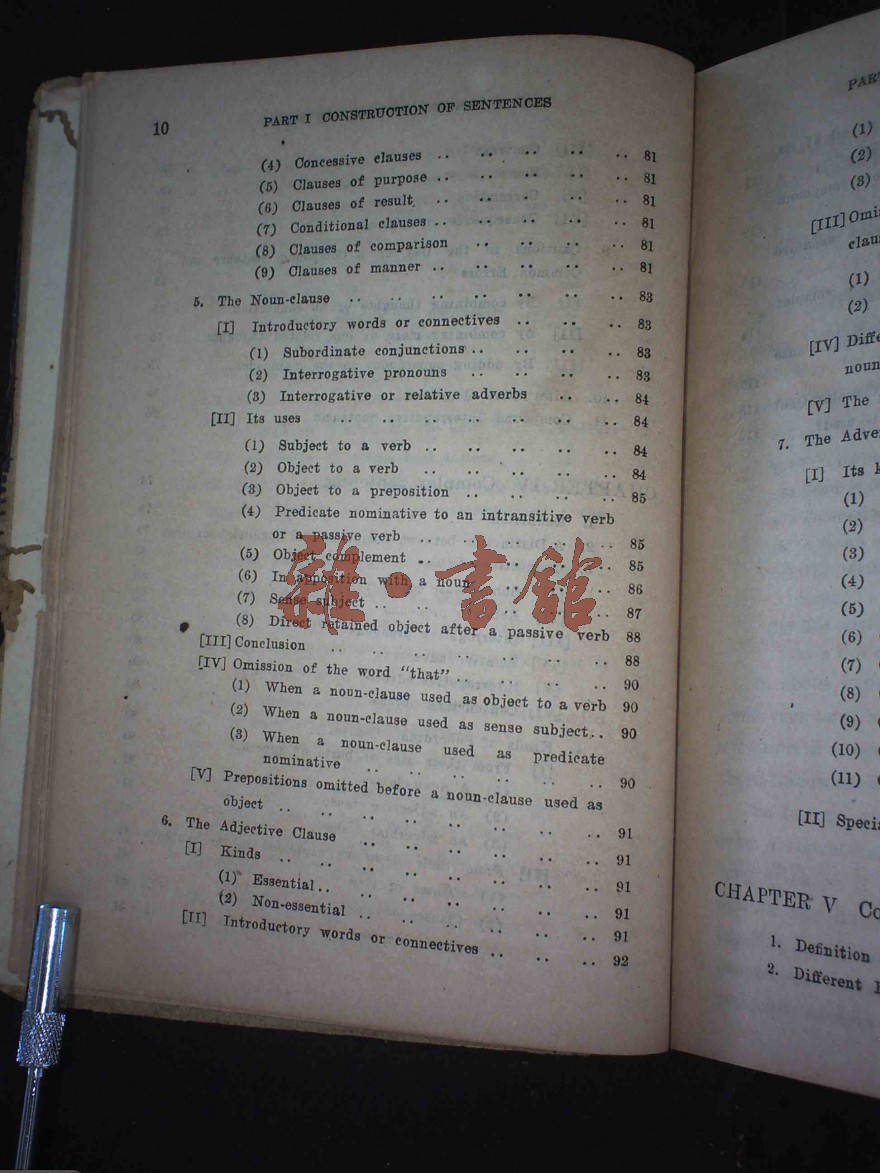 10 PART I CONSTRUCTION OF SENTENCES
(4) Concessive clauses .. .. .. .. .. 81
(5) Clauses of purpose .. .. .. .. .. 81
(6) Clauses of result. .. .. .. .. .. 81
(7) Conditional clauses .. .. .. .. .. 81
(8) Clauses of comparison .. .. .. .. 81
(9) Clauses of manner .. .. .. .. .. 81
5. The Noun-clause .. .. .. .. .. .. .. 83
[I] Introductory words or connectives .. .. .. 83
(1) Subordinate conjunctions .. .. .. .. 83
(2) Interrogative pronouns .. .. .. .. 83
(3) Interrogative or relative adverbs .. .. 84
[II] Its uses .. .. .. .. .. .. .. 84
(1) Subject to a verb .. .. .. .. .. 84
(2) Object to a verb .. .. .. .. .. 84
(3) Object to a preposition .. .. .. .. 85
(4) Predicate nominative to an intransitive verb
or a passive verb .. .. .. .. .. 85
(5) Object complement .. .. .. .. .. 85
(6) In apposition with a noun .. .. .. .. 86
(7) Sense subject .. .. .. .. .. .. 87
(8) Direct retained object after a passive verb 88
[III] Conclusion .. .. .. .. .. .. .. 88
[IV] Omission of the word "that" .. .. .. .. 90
(1) When a noun-clause used as object to a verb 90
(2) When a noun-clause used as sense subject.. 90
(3) When a noun-clause used as predicate
nominative .. .. .. .. .. .. 90
[V] Prepositions omitted before a noun-clause used as
object .. .. .. .. .. .. .. .. 91
6. The Adjective Clause .. .. .. .. .. .. 91
[I] Kinds .. .. .. .. .. .. .. .. 91
(1) Essential .. .. .. .. .. .. .. 91
(2) Non-essential .. .. .. .. .. .. 91
[II] Introductory words or connectives .. .. .. 92
雜·書館
PAR
(1)
(2)
(3)
[III] Omi
clau
(1)
(2)
[IV] Diffe
noun
[V] The
7. The Adve
[I] Its
(1)
(2)
(3)
(4)
(5)
(6)
(7)
(8)
(9)
(10)
(11)
[II] Specia
CHAPTER V Co
1. Definition
2. Different